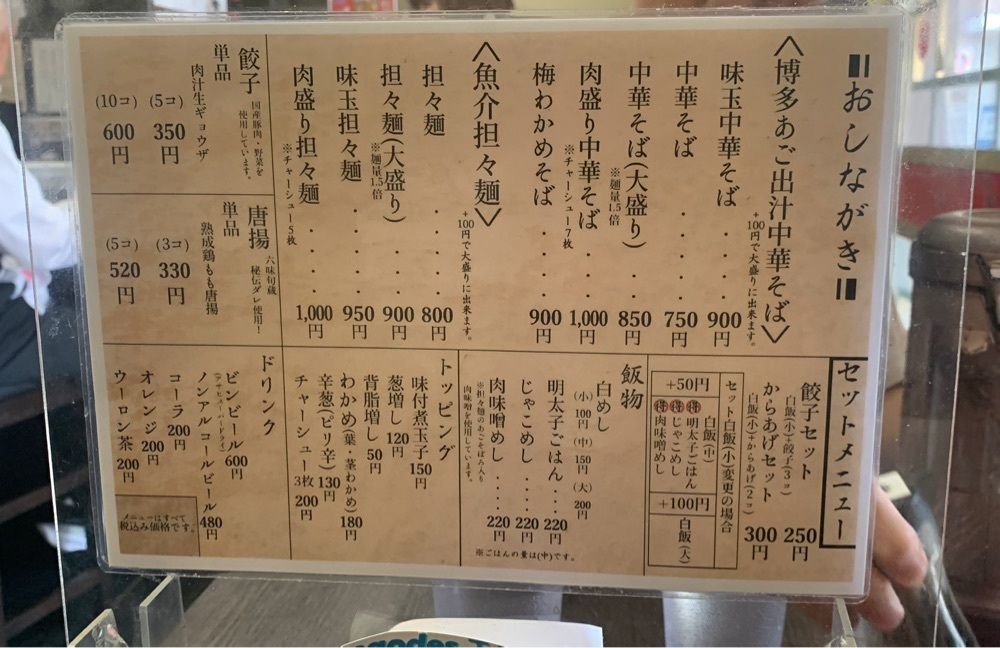 おしながき
〈博多あご出汁中華そば〉
+100円で大盛りに出来ます。
味玉中華そば・・・・900円
中華そば・・・・750円
中華そば(大盛り)・850円
※麺量1.5倍
肉盛り中華そば・・1,000円
※チャーシュー7枚
梅わかめそば・・・900円
〈魚介担々麺〉
+100円で大盛りに出来ます。
担々麺・・・・800円
担々麺(大盛り)・・900円
※麺量1.5倍
味玉担々麺・・・・950円
肉盛り担々麺・・・・1,000円
※チャーシュー5枚
餃子
国産豚肉・野菜を
使用しています。
単品
肉汁生ギョウザ
(5コ)350円
(10コ)600円
唐揚
六味旬蔵
秘伝ダレ使用！
単品
熟成鶏もも唐揚
(3コ)330円
(5コ)520円
セットメニュー
餃子セット 250円
白飯(小)+餃子(3コ)
からあげセット 300円
白飯(小)+からあげ(2コ)
セット白飯(小)変更の場合
+50円
白飯(中)
得明太子ごはん
得じゃこめし
得肉味噌めし
+100円
白飯(大)
飯物
白めし
(小)100円 (中)150円 (大)200円
明太子ごはん・・220円
じゃこめし・・・・220円
肉味噌めし・・・・220円
※担々麺のあごそぼろ入り
肉味噌を使用しています。
※ごはんの量は(中)です。
トッピング
味付煮玉子 150円
葱増し 120円
背脂増し 50円
わかめ(葉・茎わかめ) 180円
辛葱(ピリ辛) 130円
チャーシュー 3枚 200円
ドリンク
ビンビール 600円
(アサヒスーパードライ)
ノンアルコールビール 480円
コーラ 200円
オレンジ 200円
ウーロン茶 200円
メニューはすべて
税込み価格です。